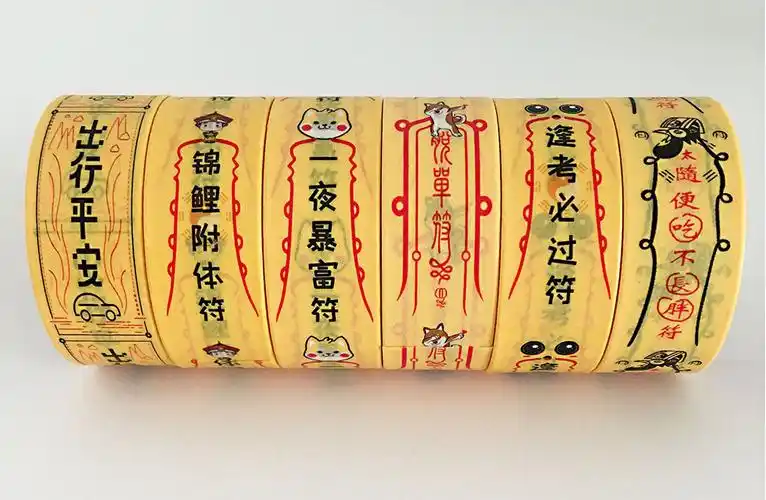 出行平安
出
锦鲤附体符
一夜暴富符
單符
逢考必过符
逢
符
太
隨便吃不長胖符